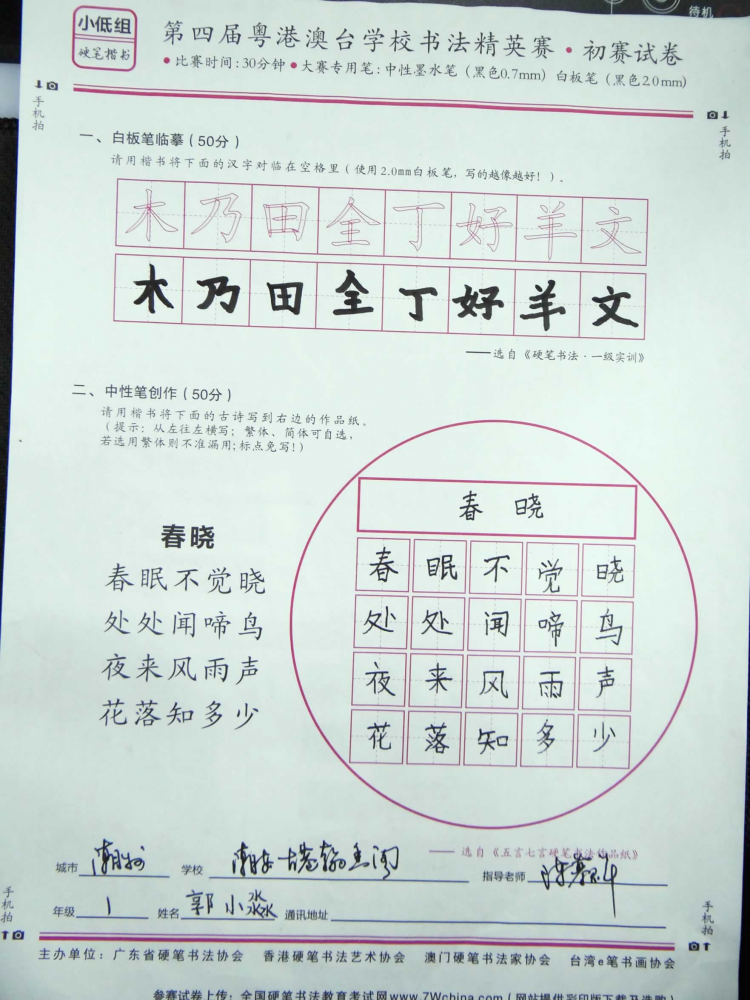 待机
小低组
硬笔楷书
第四届粤港澳台学校书法精英赛·初赛试卷
●比赛时间:30分钟●大赛专用笔:中性墨水笔(黑色0.7mm)白板笔(黑色2.0mm)
手机拍
手机拍
一、白板笔临摹(50分)
请用楷书将下面的汉字对临在空格里(使用2.0mm白板笔,写的越像越好!)。
木乃田全丁好羊文
木乃田全丁好羊文
——选自《硬笔书法·一级实训》
二、中性笔创作(50分)
请用楷书将下面的古诗写到右边的作品纸。
(提示:从左往左横写;繁体、简体可自选,
若选用繁体则不准漏用;标点免写!)
春晓
春眠不觉晓
处处闻啼鸟
夜来风雨声
花落知多少
春晓
春眠不觉晓
处处闻啼鸟
夜来风雨声
花落知多少
——选自《五言七言硬笔书法作品纸》
城市 潮州 学校 指导老师
年级 1 姓名 郭小淼 通讯地址
手机拍
手机拍
主办单位:广东省硬笔书法协会 香港硬笔书法艺术协会 澳门硬笔书法家协会 台湾e笔书画协会
参赛试卷上传:全国硬笔书法教育考试网www.7Wchina.com(网站提供彩印版下载及选购)